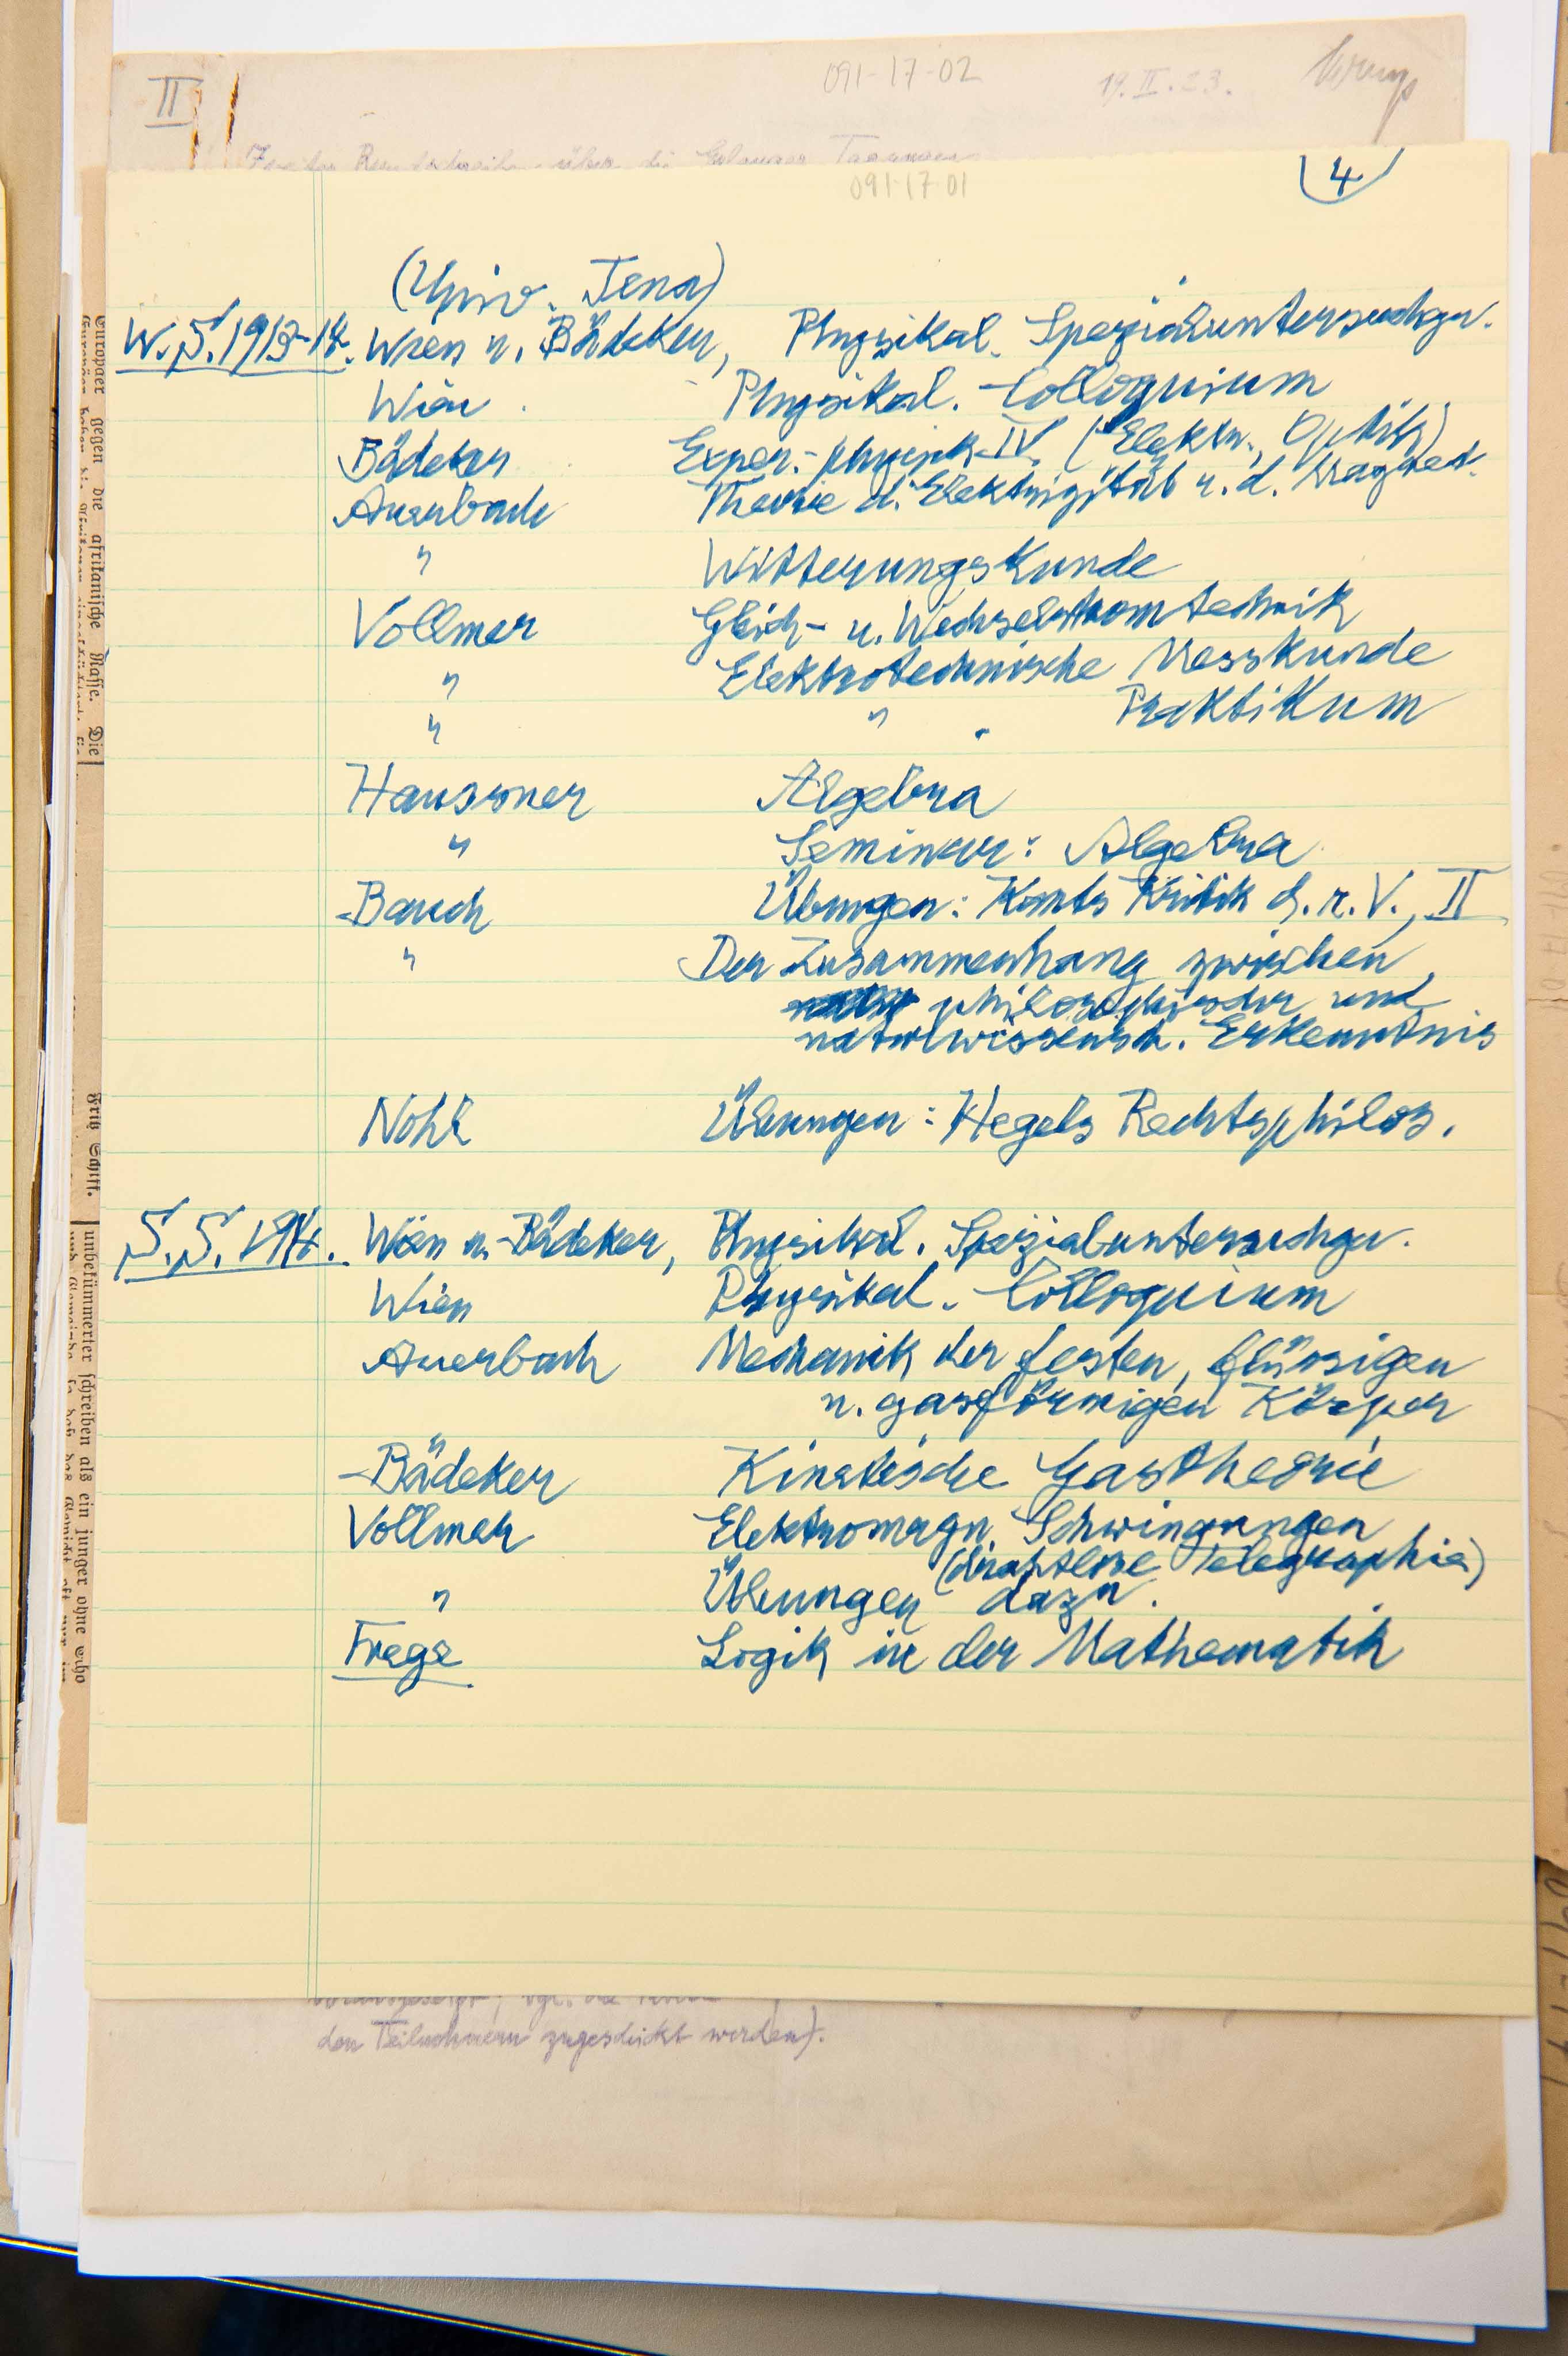 II
091-17-02
19.II.23.
091-17-01
4
(Univ. Jena)
W.S. 1913-14. Wien u. Bädeker, Physikal. Spezialuntersuchgn.
Wien Physikal. Colloquium
Bädeker Exper.-physik IV (Elektr., Optik)
Auerbach Theorie d. Elektrizität u. d. Magnet.
" Witterungskunde
Vollmer Gleich- u. Wechselstromtechnik
" Elektrotechnische Messkunde
" " Praktikum
Haussner Algebra
" Seminar: Algebra
Bauch Übungen: Kants Kritik d. r. V., II
" Der Zusammenhang zwischen
philosophischer und
naturwissensch. Erkenntnis
Nohl Übungen: Hegels Rechtsphilos.
S.S. 1914. Wien u. Bädeker, Physikal. Spezialuntersuchgn.
Wien Physikal. Colloquium
Auerbach Mechanik der festen, flüssigen
u. gasförmigen Körper
Bädeker Kinetische Gastheorie
Vollmer Elektromagn. Schwingungen
(drahtlose Telegraphie)
" Übungen dazu.
Frege Logik in der Mathematik
den Teilnehmern zugeschickt werden).
Europäer gegen die afrikanische Rasse. Die
Fritz Schiff.
unbekümmerter schreiben als ein junger ohne Echo